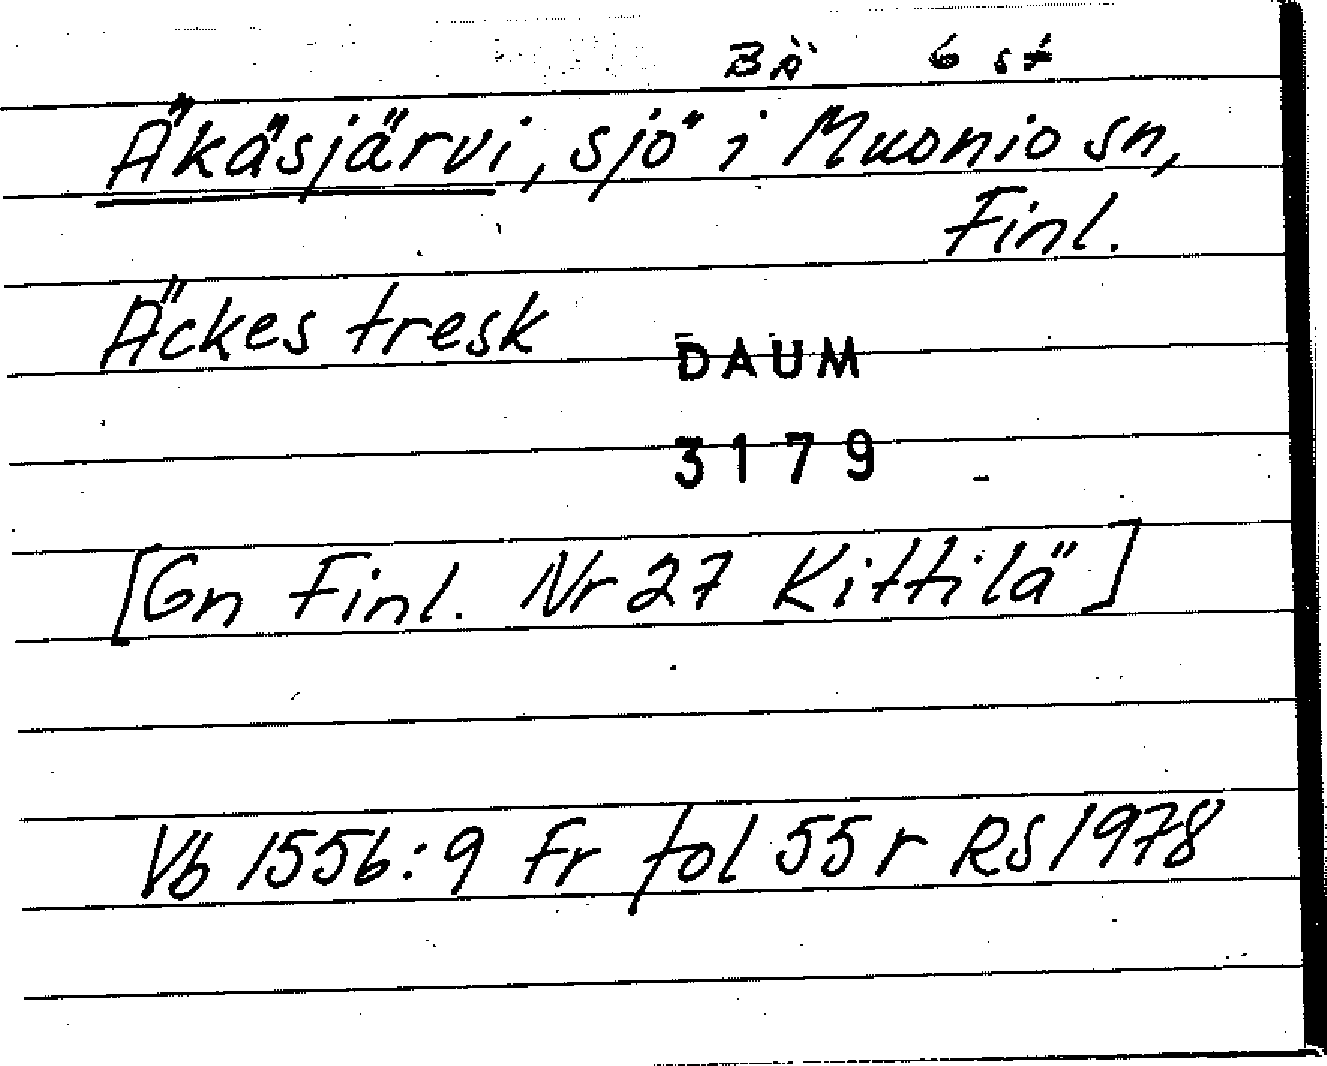 BÄ 6 st
Äkäsjärvi, sjö i Muonio sn,
Finl.
Äckes tresk
DAUM
3179
[Gn Finl. Nr 27 Kittilä]
Vb 1556:9 Fr fol 55 r RS 1978